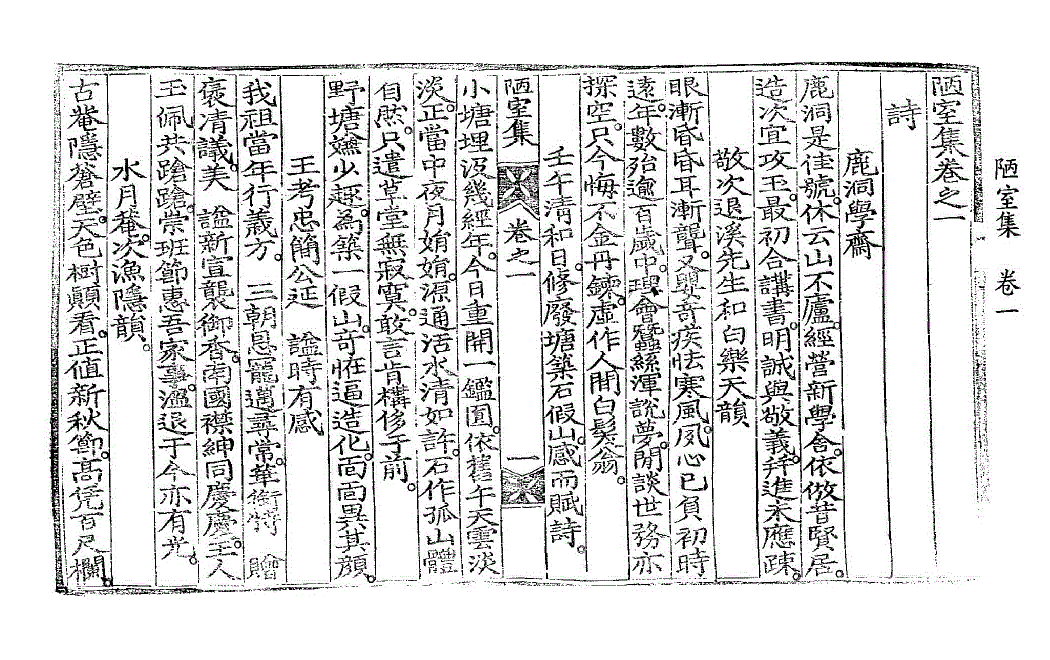 陋室集 卷一
陋室集卷之一
詩
鹿洞學齋
鹿洞是佳號。休云山不廬。經營新學舍。依倣昔賢居。
造次宜攻玉。最初合講書。明誠與敬義。拜進未應疎。
敬次退溪先生和白樂天韻
眼漸昏昏耳漸聾。又嬰奇疾怯寒風。夙心已負初時
遠。年數殆逾百歲中。理會蠶絲渾說夢。閒談世務亦
探空。只今悔不金丹鍊。虛作人閒白髮翁。
壬午淸和日。修廢塘築石假山。感而賦詩。
陋室集 卷之一 一
小塘埋沒幾經年。今日重開一鑑圓。依舊午天雲淡
淡。正當中夜月娟娟。源通活水清如許。石作孤山體
自然。只遣草堂無寂寞。敢言肯構侈于前。
野塘嫌少趣。爲築一假山。奇恠逼造化。面面異其顔。
王考忠簡公延 諡時有感
我祖當年行義方。 三朝恩寵邁尋常。華銜特 贈
褒凊議。美 諡新宣襲御香。南國襟紳同慶慶。王人
玉佩共蹌蹌。崇班節惠吾家事。溫退于今亦有光。
水月菴。次漁隱韻。
古菴隱蒼壁。天色樹顚看。正値新秋節。高凭百尺欄。